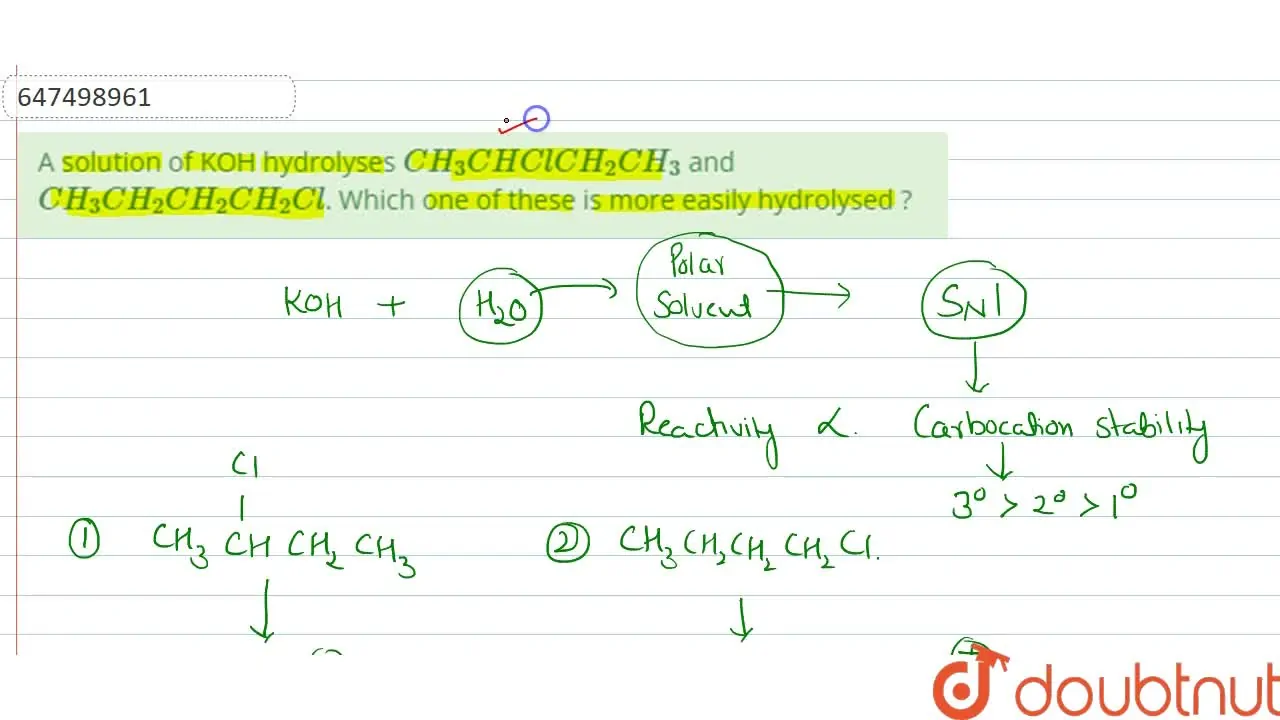 647498961
A solution of KOH hydrolyses CH₃CHClCH₂CH₃ and
CH₃CH₂CH₂CH₂Cl. Which one of these is more easily hydrolysed ?
Polar
KOH + H₂O Solvent SN1
Reactivity α. Carbocation stability
3° > 2° > 1°
Cl
① CH₃ CH CH₂ CH₃ ② CH₃ CH₂ CH₂ CH₂ Cl.
+
doubtnut